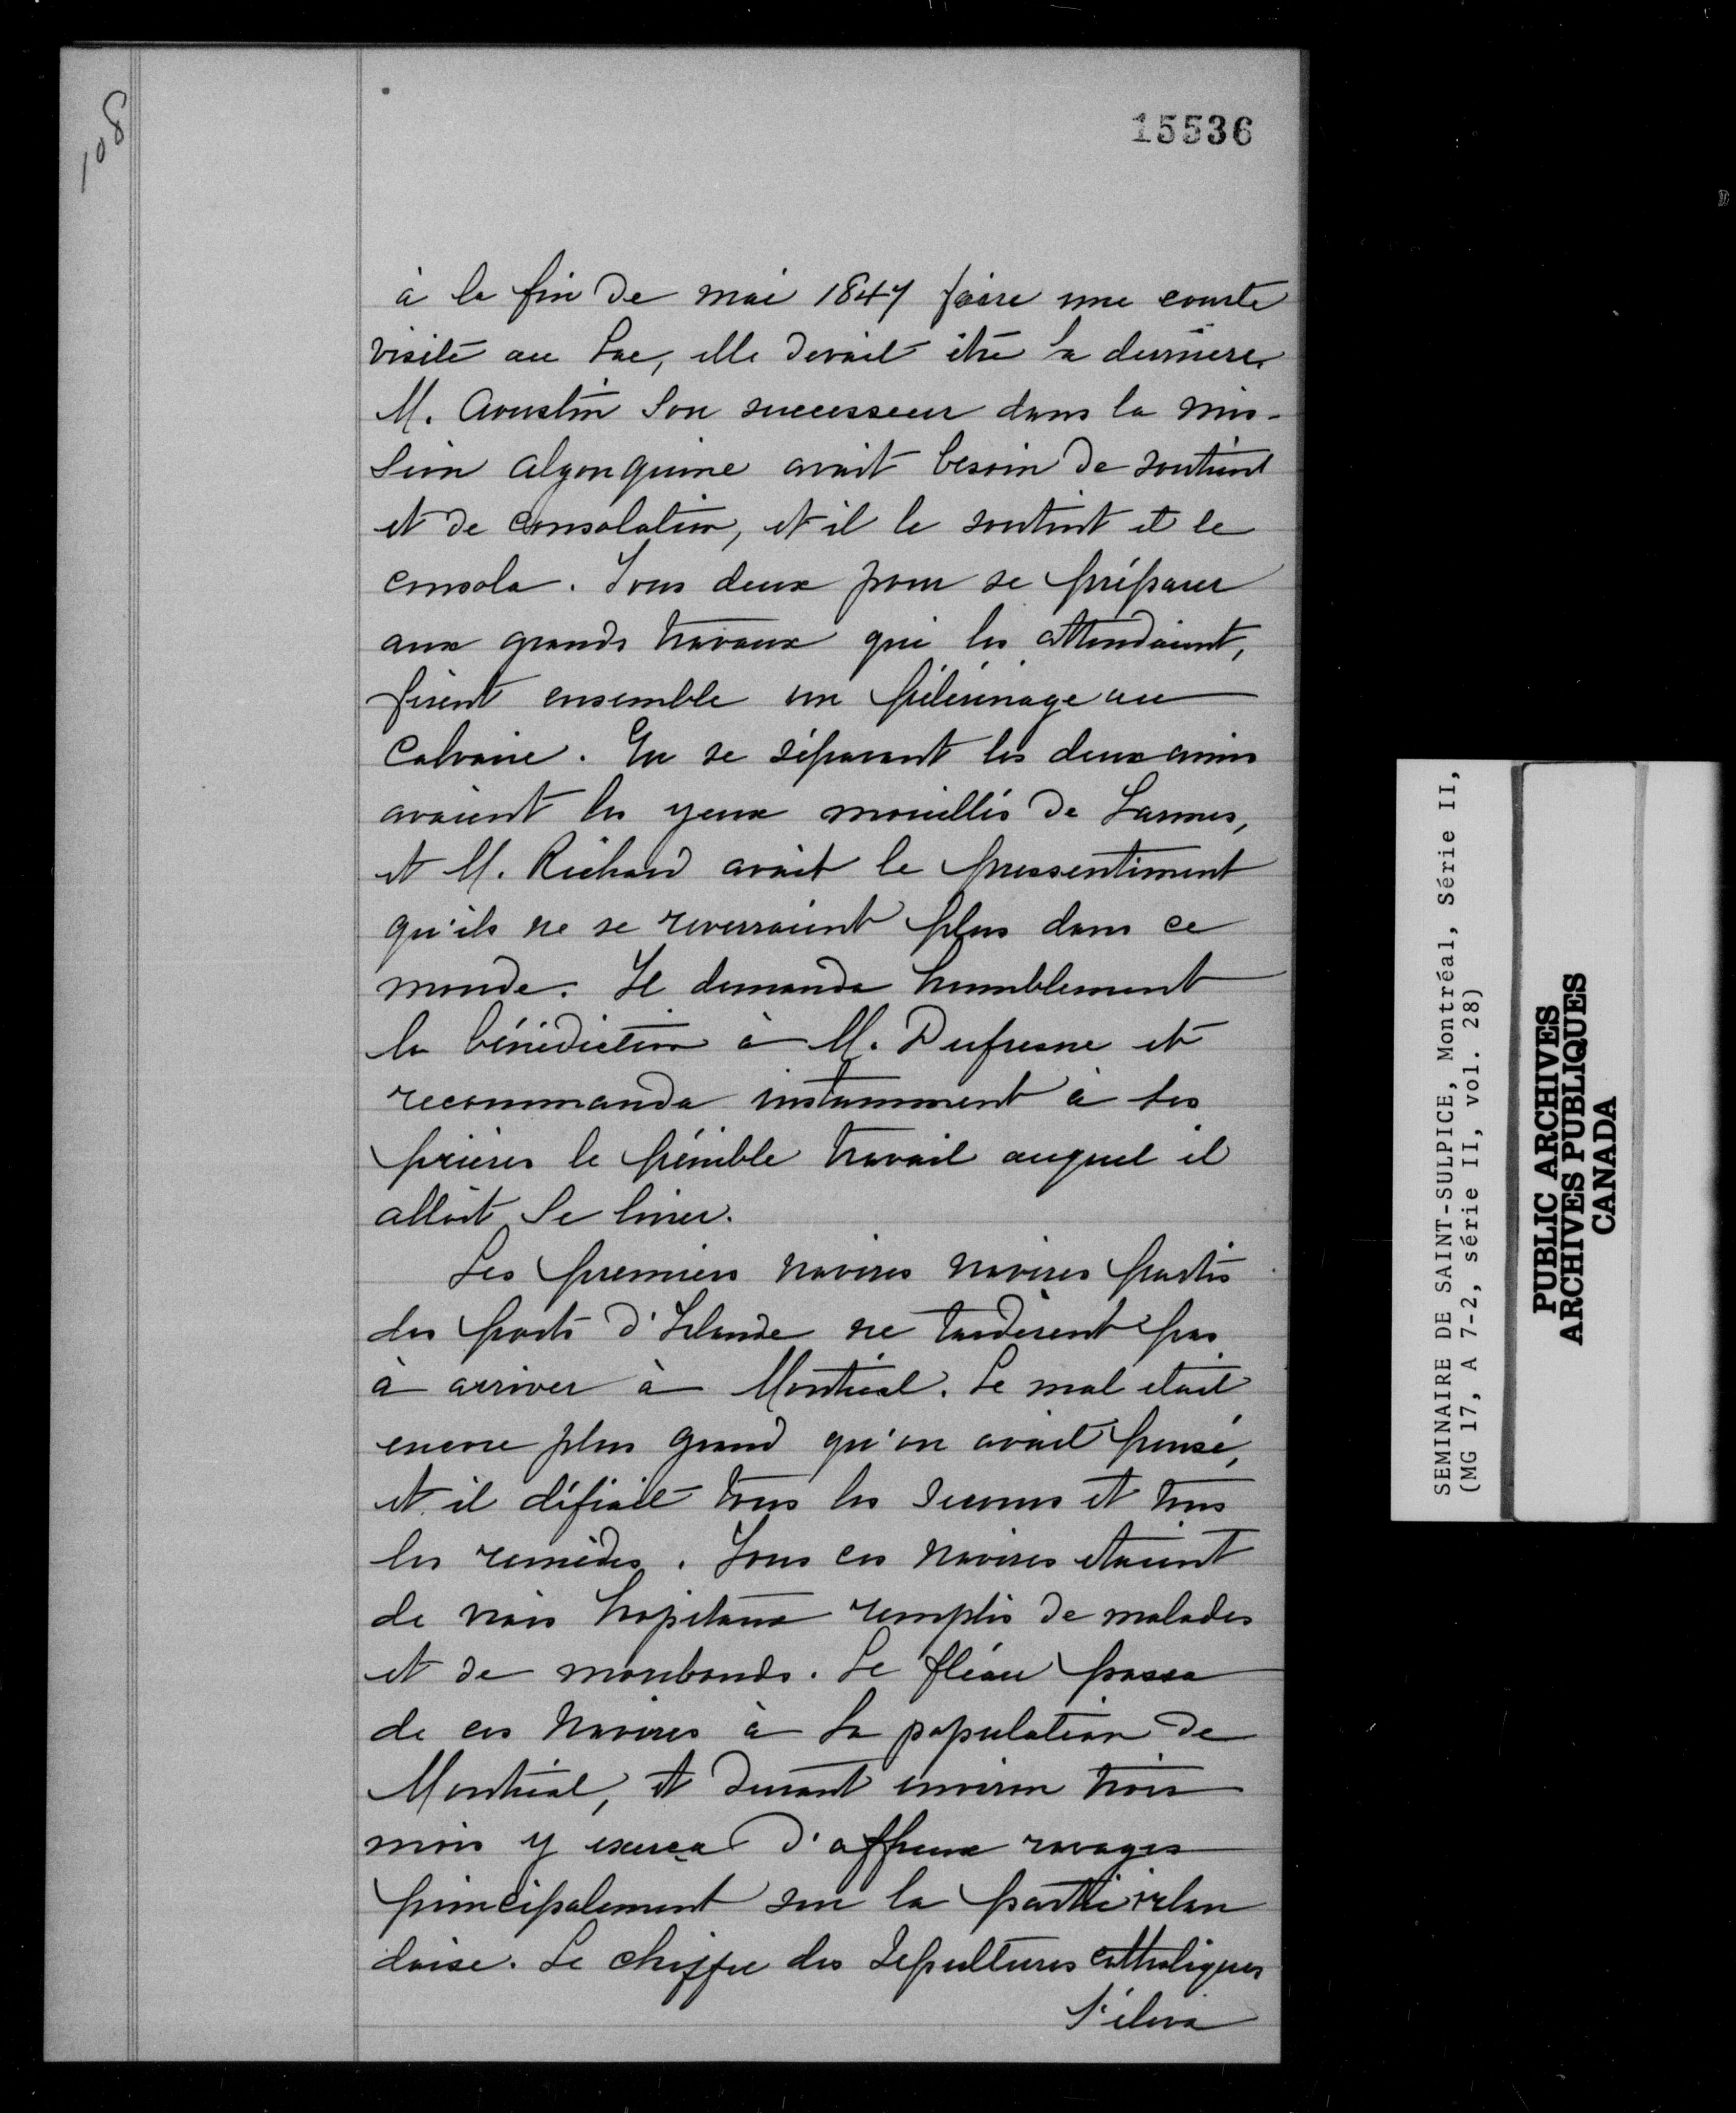 108
15536
à la fin de mai 1847 faire une courte
visite au Lac, elle devait être la dernière.
M. Aoustin son successeur dans la mis-
sion algonquine avait besoin de soutient
et de consolation, et il le soutint et le
consola. Tous deux pour se préparer
aux grands travaux qui les attendaient,
firent ensemble un pélérinage au
Calvaire. En se séparant les deux amis
avaient les yeux mouillés de larmes,
et M. Richard avait le pressentiment
qu'ils ne se reverraient plus dans ce
monde. Il demanda humblement
la bénédiction à M. Dufresne et
recommanda instamment à ses
prières le pénible travail auquel il
allait se livrer.
Les premiers navires navires partis
des ports d'Irlande ne tardèrent pas
à arriver à Montréal. Le mal était
encore plus grand qu'on avait pensé,
et il défiait tous les secours et tous
les remèdes. Tous ces navires étaient
de vrais hopitaux remplis de malades
et de moribonds. Le fléau passa
de ces navires à la population de
Montréal, et durant environ trois
mois y exerça d'affreux ravages
principalement sur la partie irlan
daise. Le chiffre des sepultures catholiques
s'éleva
SEMINAIRE DE SAINT-SULPICE, Montréal, Série II,
(MG 17, A 7-2, série II, vol. 28)
PUBLIC ARCHIVES
ARCHIVES PUBLIQUES
CANADA